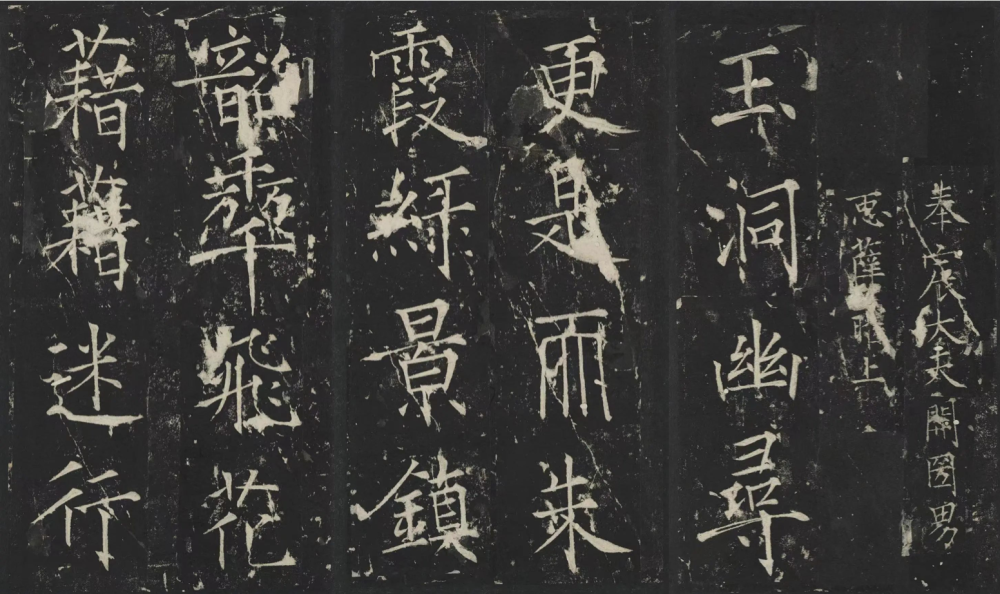 奉宸大夫開圀男
𢘑薛曜上
玉洞幽尋
更是𠀑朱
霞緑景鎮
韶𠡦飛花
藉藉迷行